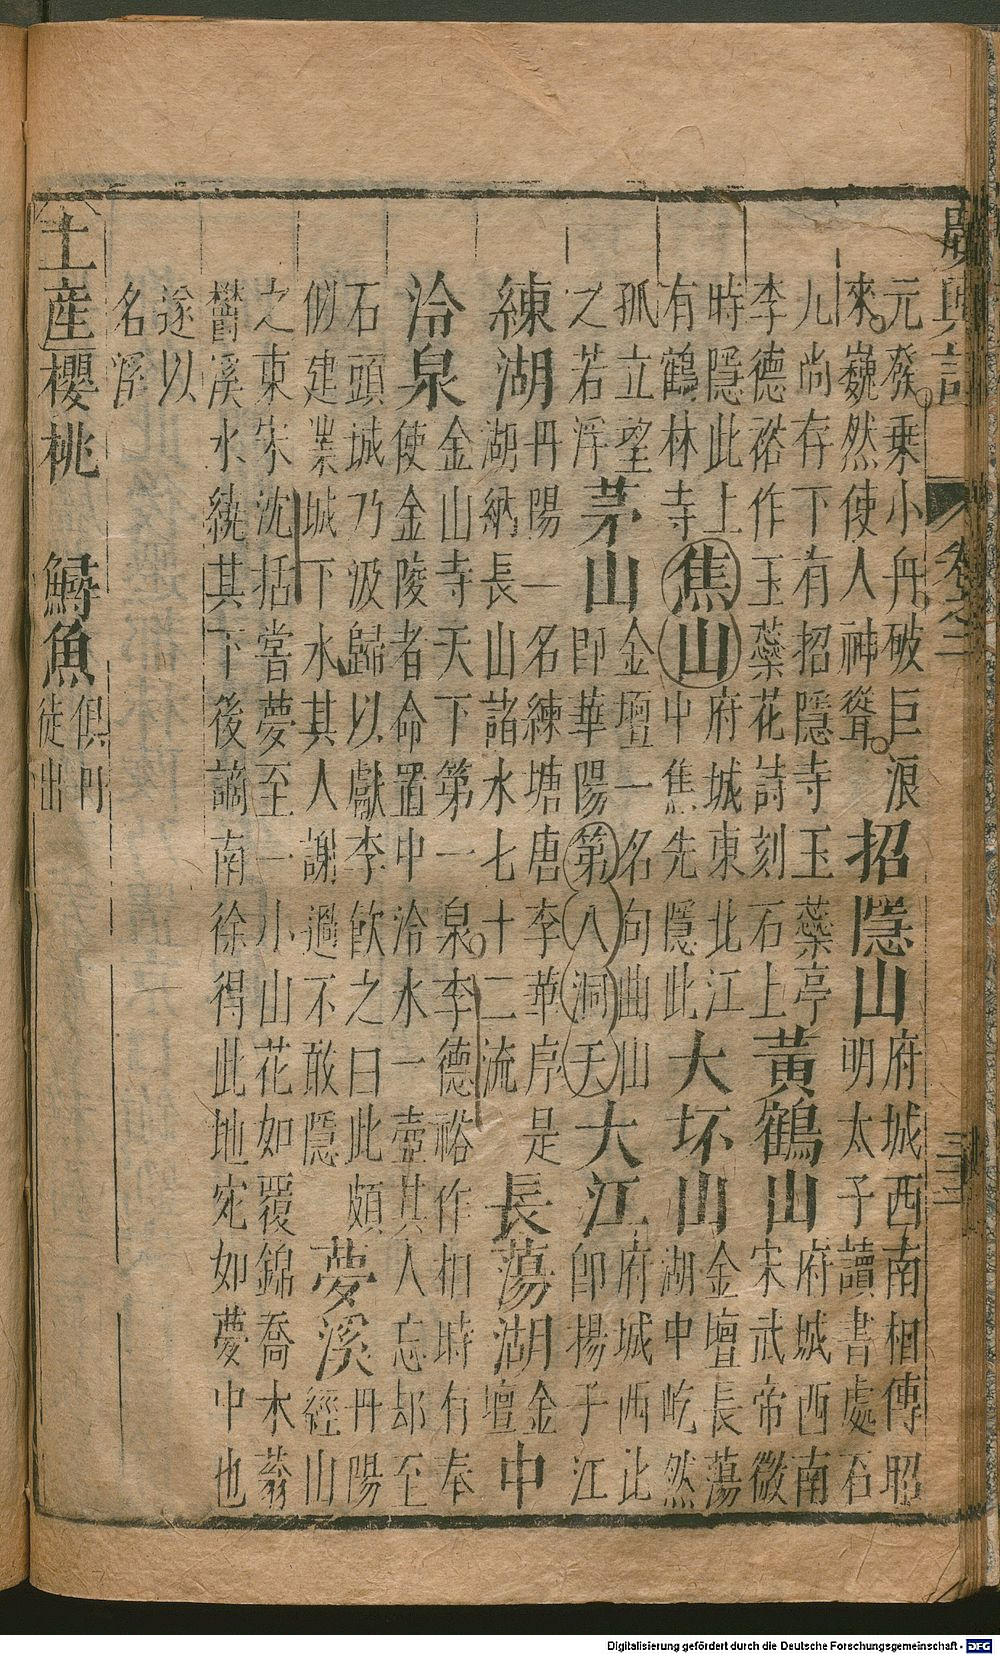 廣輿記 卷之二 三三
元發乘小舟破巨浪
來巍然使人神聳
招隱山
府城西南相傳昭
明太子讀書處石
几尚存下有招隱寺玉蘂亭
李德裕作玉蘂花詩刻石上
黃鶴山
府城西南
宋武帝微
時隱此上
有鶴林寺
焦山
府城東北江
中焦先隱此
大坯山
金壇長蕩
湖中屹然
孤立望
之若浮
茅山
金壇一名句曲山
即華陽第八洞天
大江
府城西北
即揚子江
練湖
丹陽一名練塘唐李華序是
湖納長山諸水七十二流
長蕩湖
金
壇
中
泠泉
金山寺天下第一泉李德裕作相時有奉
使金陵者命置中泠水一壺其人忘却至
石頭城乃汲歸以獻李飲之曰此頗
似建業城下水其人謝過不敢隱
夢溪
丹陽
經山
之東宋沈括嘗夢至一小山花如覆錦喬木蓊
鬱溪水繞其下後謫南徐得此地宛如夢中也
遂以
名溪
土産櫻桃 鱘魚
俱丹
徒出
Digitalisierung gefördert durch die Deutsche Forschungsgemeinschaft - DFG